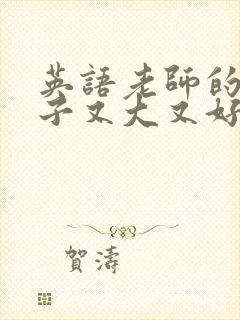 英語老師的
子又大又好
賀濤